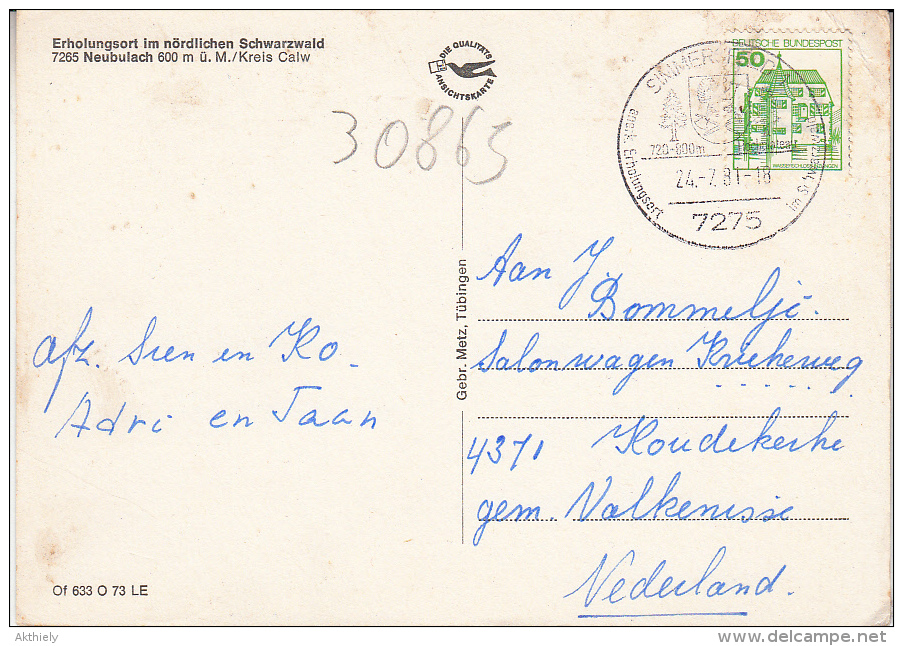 Erholungsort im nördlichen Schwarzwald
7265 Neubulach 600 m ü. M./Kreis Calw
DIE QUALITÄTS
ANSICHTSKARTE
30865
DEUTSCHE BUNDESPOST
50
WASSERSCHLOSS
SIMMERS
720-800m
Hochplateau
Erholungsort
24.-7.81-18
7275
Gebr. Metz, Tübingen
Aan J. Bommeljé.
Salonwagen
4371 Koudekerke
gem. Valkenisse
Nederland.
afz. Sien en Ko.
Adri en Jaan
Of 633 O 73 LE
Akthiely
delcampe.net